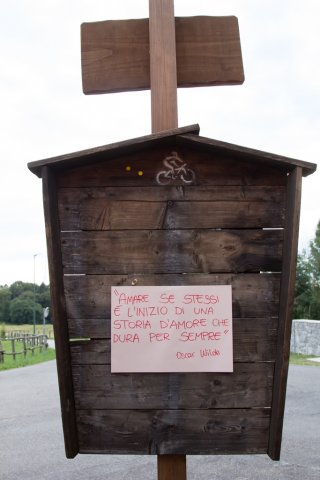 "AMARE SE STESSI
È L'INIZIO DI UNA
STORIA D'AMORE CHE
DURA PER SEMPRE"
Oscar Wilde